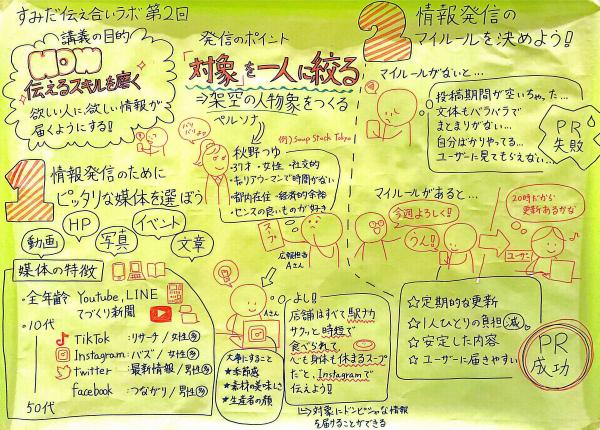 すみだ伝え合いラボ 第2回
講義の目的
HOW
伝えるスキルを磨く
欲しい人に欲しい情報が
届くようにする!!
1 情報発信のために
ピッタリな媒体を選ぼう
動画
HP
写真
イベント
文章
媒体の特徴
・全年齢 Youtube, LINE
てづくり新聞
・10代
TikTok : リサーチ / 女性多
Instagram : バズ / 女性多
twitter : 最新情報 / 男性多
facebook : つながり / 男性多
50代
発信のポイント
「対象」を一人に絞る
⇒架空の人物象をつくる
ペルソナ
バリバリよ♡
例) Soup Stock Tokyo
秋野つゆ
・37才・女性・社交的
・キャリアウーマンで時間がない
・都内在住・経済的余裕
・センスの良いものが好き
スープ
広報担当
Aさん
Aさん
大事にすること
★季節感
★素材の美味しさ
★生産者の顔
よし!!
店舗はすべて駅ナカ
サクッと時短で
食べられて
心も身体も休まるスープ
だと、Instagramで
伝えよう!!
↳対象にドンピシャな情報
を届けることができる
2 情報発信の
マイルールを決めよう!!
マイルールがないと…
投稿期間が空いちゃった…
文体もバラバラで
まとまりがない…
自分ばかりやってる…
ユーザーに見てもらえない…
PR
失敗
マイルールがあると…
今週よろしく!!
うん!!
20時だから
更新あるかな
ユーザー
☆定期的な更新
☆1人ひとりの負担減
☆安定した内容
☆ユーザーに届きやすい
PR
成功